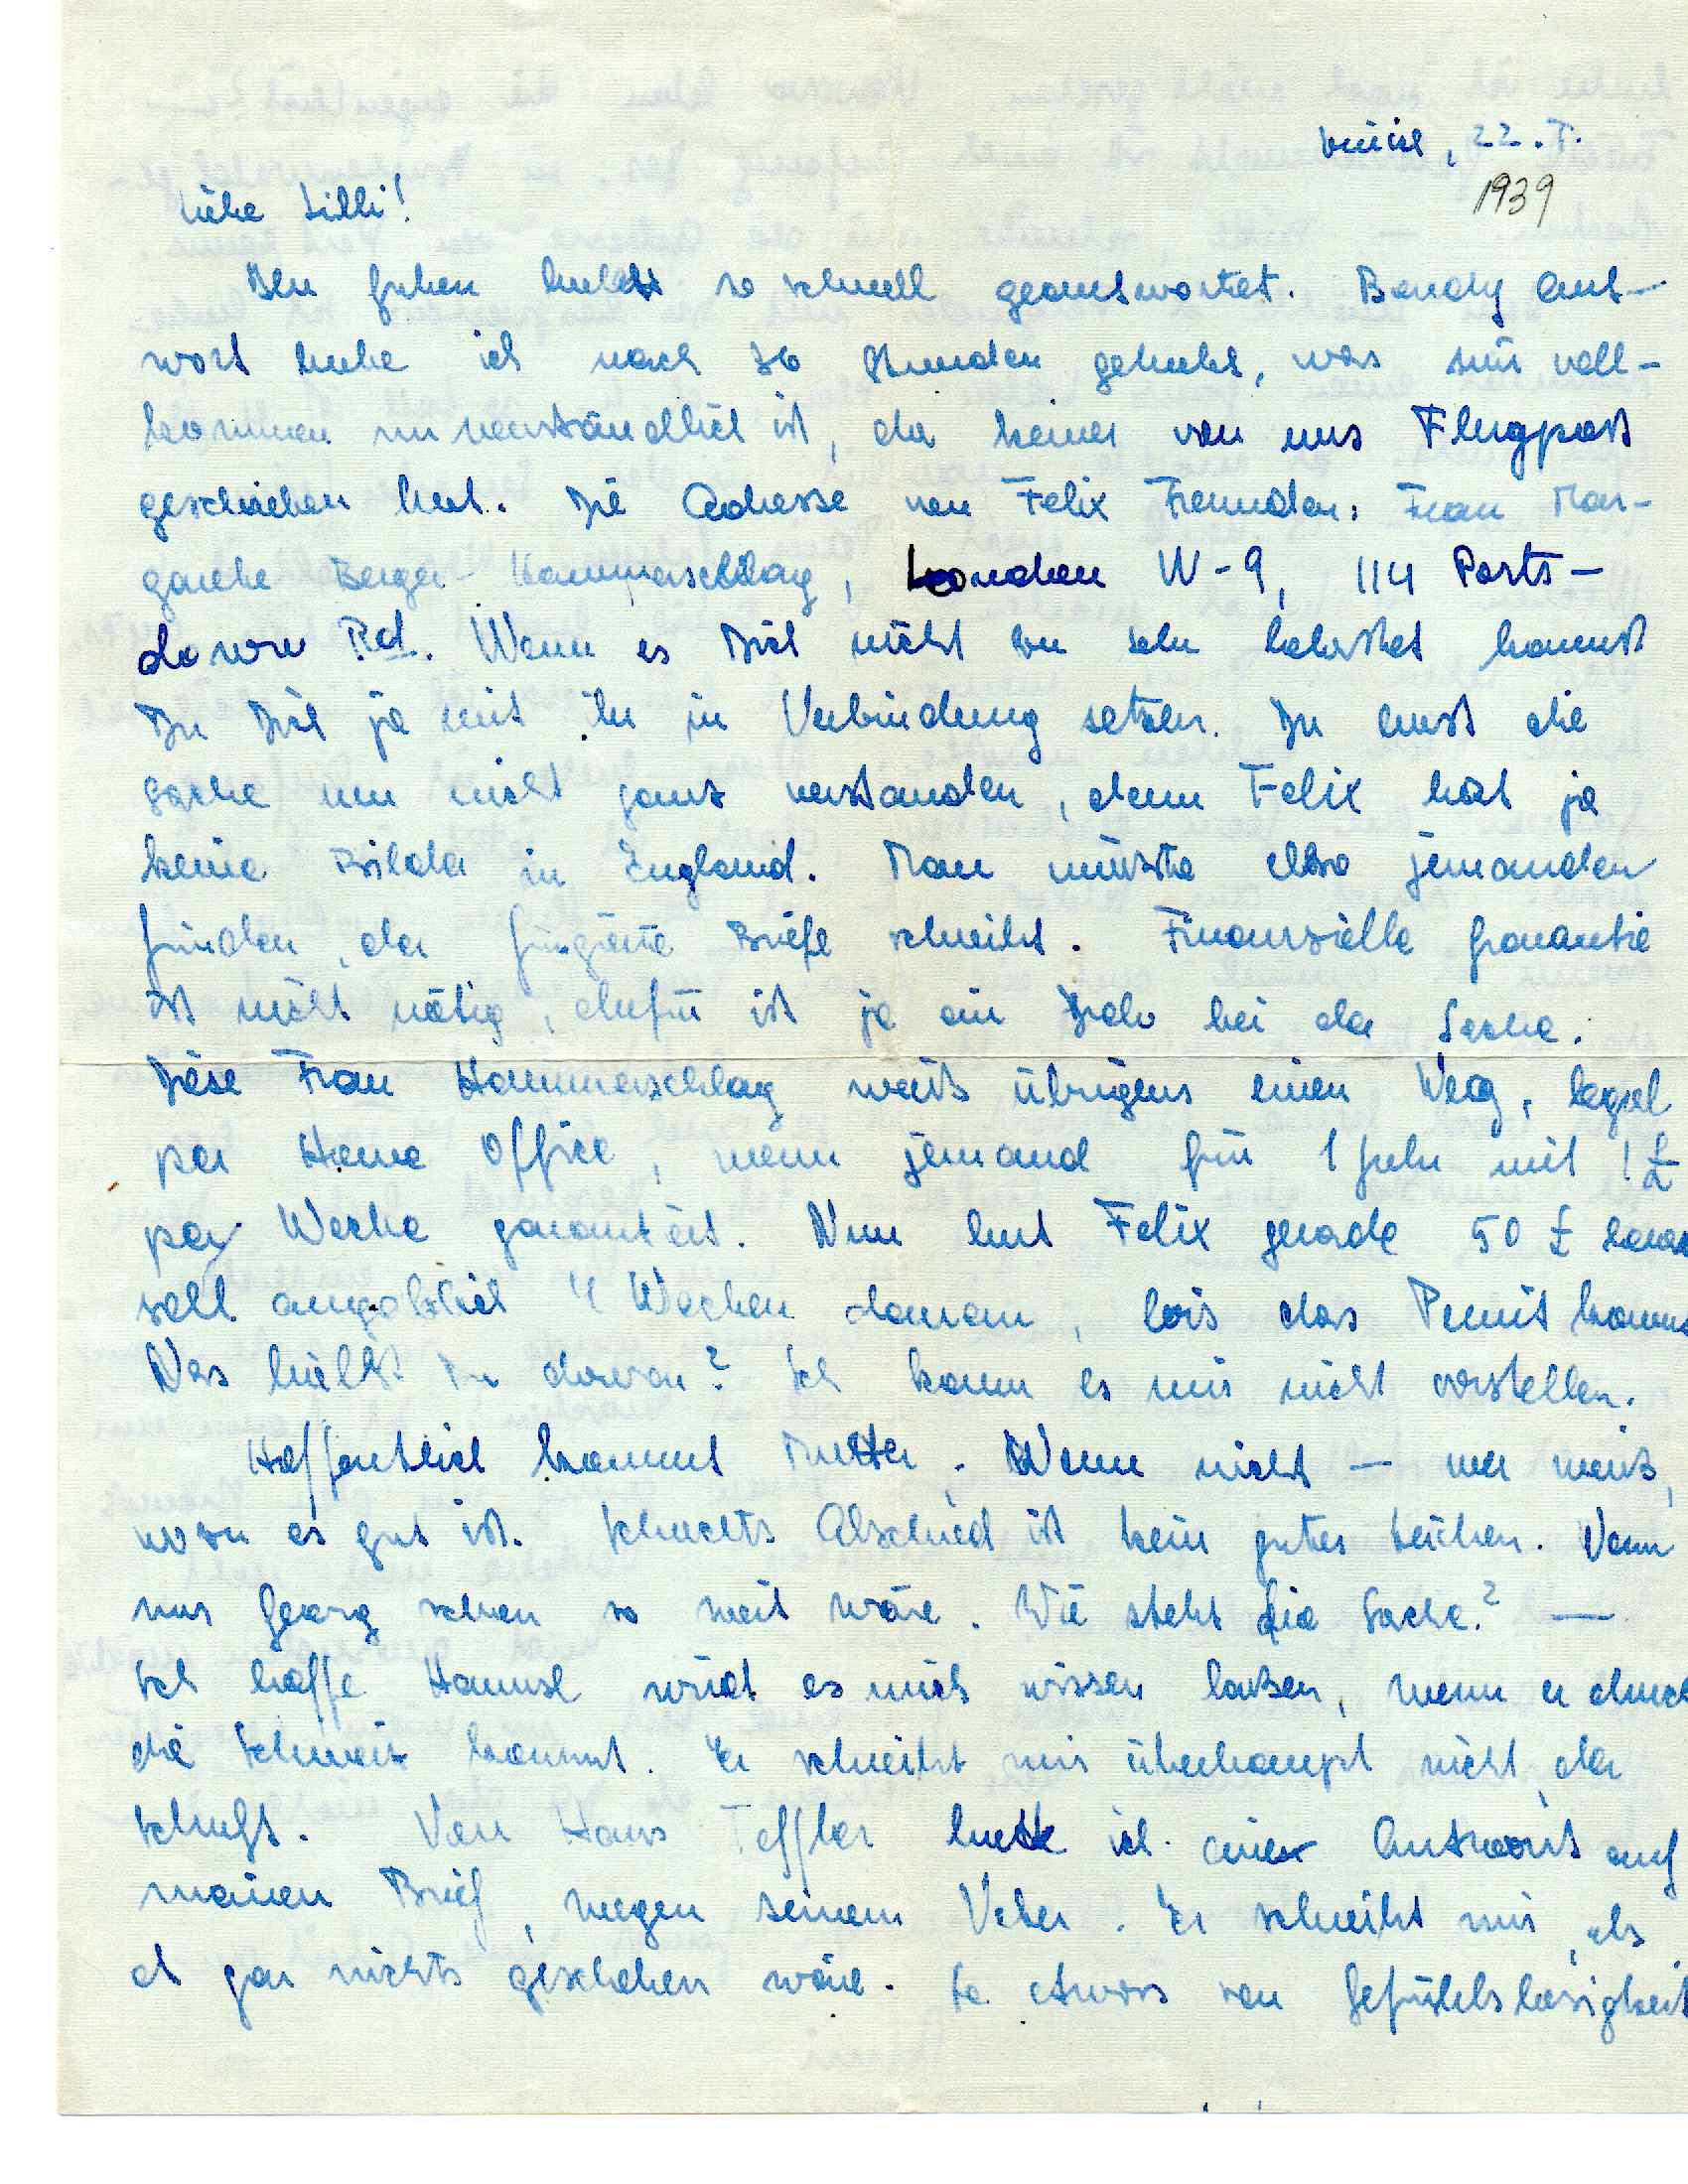 Zürich, 22. I.
1939
Liebe Lilli!
Ihr habt so schnell geantwortet. Bandy Ant-
wort habe ich nach 36 Stunden gehabt, was mir voll-
kommen unverständlich ist, da keiner von uns Flugpost
geschrieben hat. Die Adresse von Felix Freunden: Frau Mar-
garethe Berger-Hammerschlag, London W-9, 114 Ports-
down Rd. Wenn es Dich nicht zu sehr belastet kannst
Du Dich ja mit ihr in Verbindung setzen. Du hast die
Sache nur nicht ganz verstanden, denn Felix hat ja
keine Bilder in England. Man müsste also jemanden
finden, der fingierte Briefe schreibt. Finanzielle Garantie
ist nicht nötig, dafür ist ja ein Depot bei der Sache.
Diese Frau Hammerschlag weiß übrigens einen Weg, legal
per Home Office, wenn jemand für 1 Jahr mit 1 £
per Woche garantiert. Nun hat Felix gerade 50 £
soll angeblich 4 Wochen dauern, bis das Permit kommt
Was hältst Du davon? Ich kann es mir nicht vorstellen.
Hoffentlich kommt Mutter. Wenn nicht — wer weiß,
wozu es gut ist. Schachts Abschied ist kein gutes Zeichen. Wenn
nur Georg schon so weit wäre. Wie steht die Sache? —
Ich hoffe Hannsl wird es mich wissen laßen, wenn er durch
die Schweiz kommt. Er schreibt mir überhaupt nicht, der
Schuft. Von Hans Teffler hatte ich eine Antwort auf
meinen Brief, wegen seinem Vater. Er schreibt mir, als
ob gar nichts geschehen wäre. So etwas von Gefühlslosigkeit